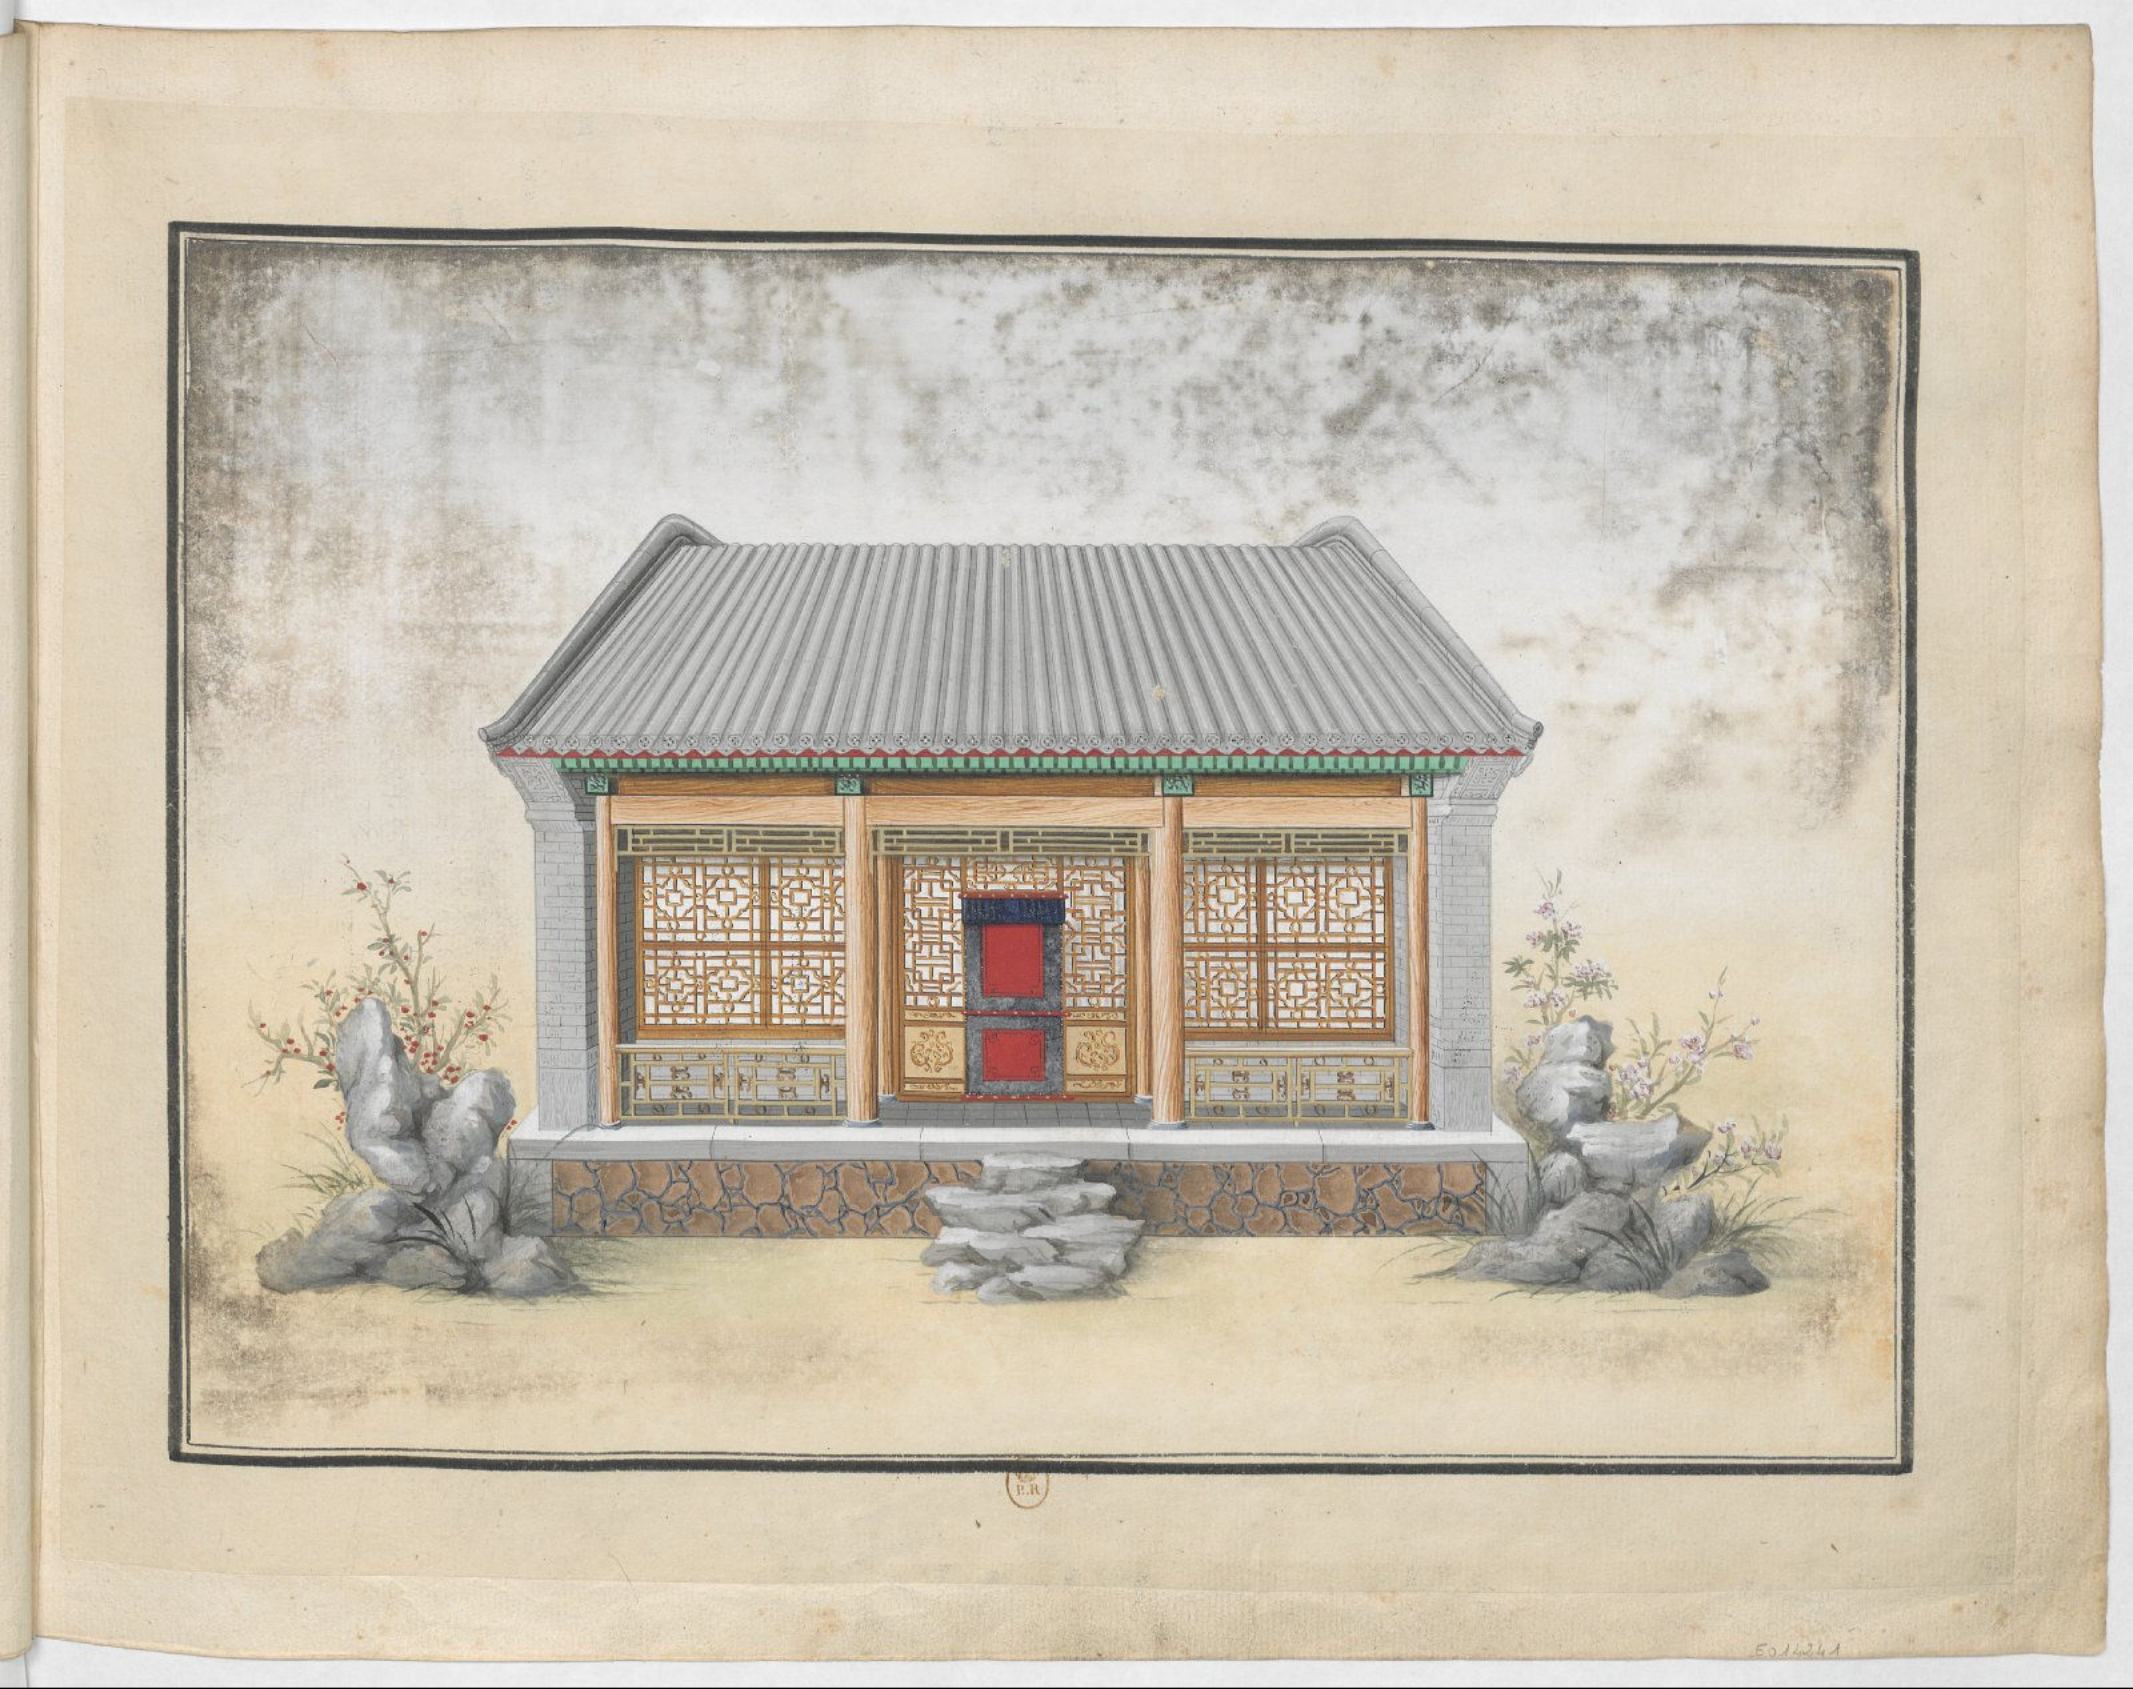 B.R
E014241